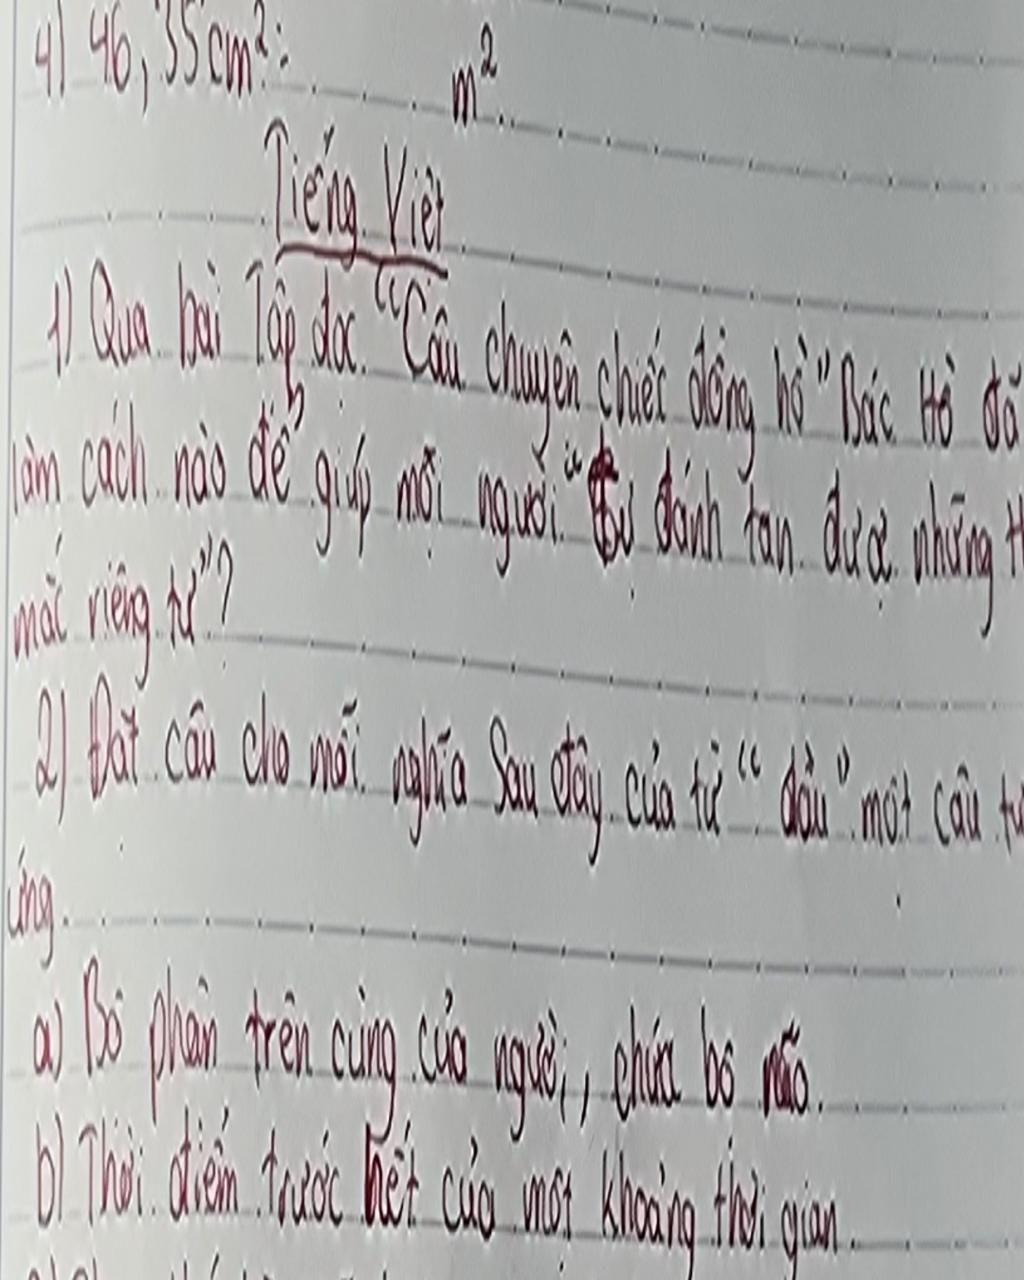 4) 46,35cm²: m²
Tiếng Việt
1) Qua bài Tập đọc "Câu chuyện chiếc đồng hồ" Bác Hồ đã
làm cách nào để giúp mọi người "tự đánh tan được những
mắc riêng tư"?
2) Đặt câu cho mỗi nghĩa sau đây của từ "đầu" một câu
ứng.
a) Bộ phận trên cùng của người, chứa bộ não.
b) Thời điểm trước hết của một khoảng thời gian.